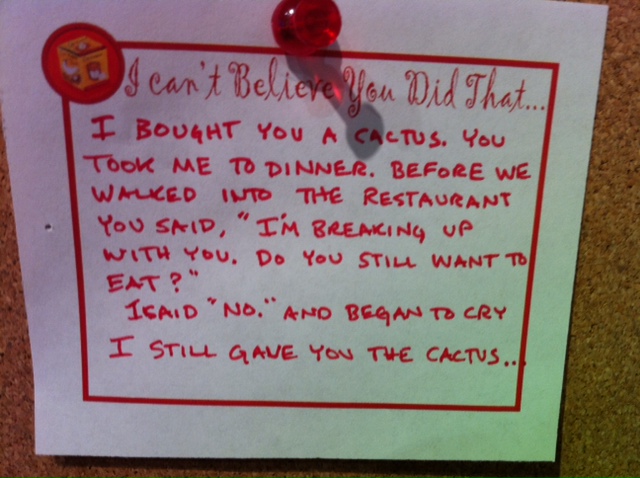 I can't Believe You Did That...
I BOUGHT YOU A CACTUS. YOU
TOOK ME TO DINNER. BEFORE WE
WALKED INTO THE RESTAURANT
YOU SAID, "I'M BREAKING UP
WITH YOU. DO YOU STILL WANT TO
EAT?"
I SAID "NO." AND BEGAN TO CRY
I STILL GAVE YOU THE CACTUS...